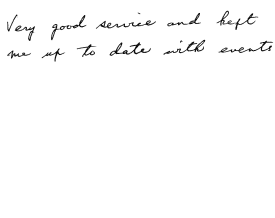 Very good service and kept
me up to date with events